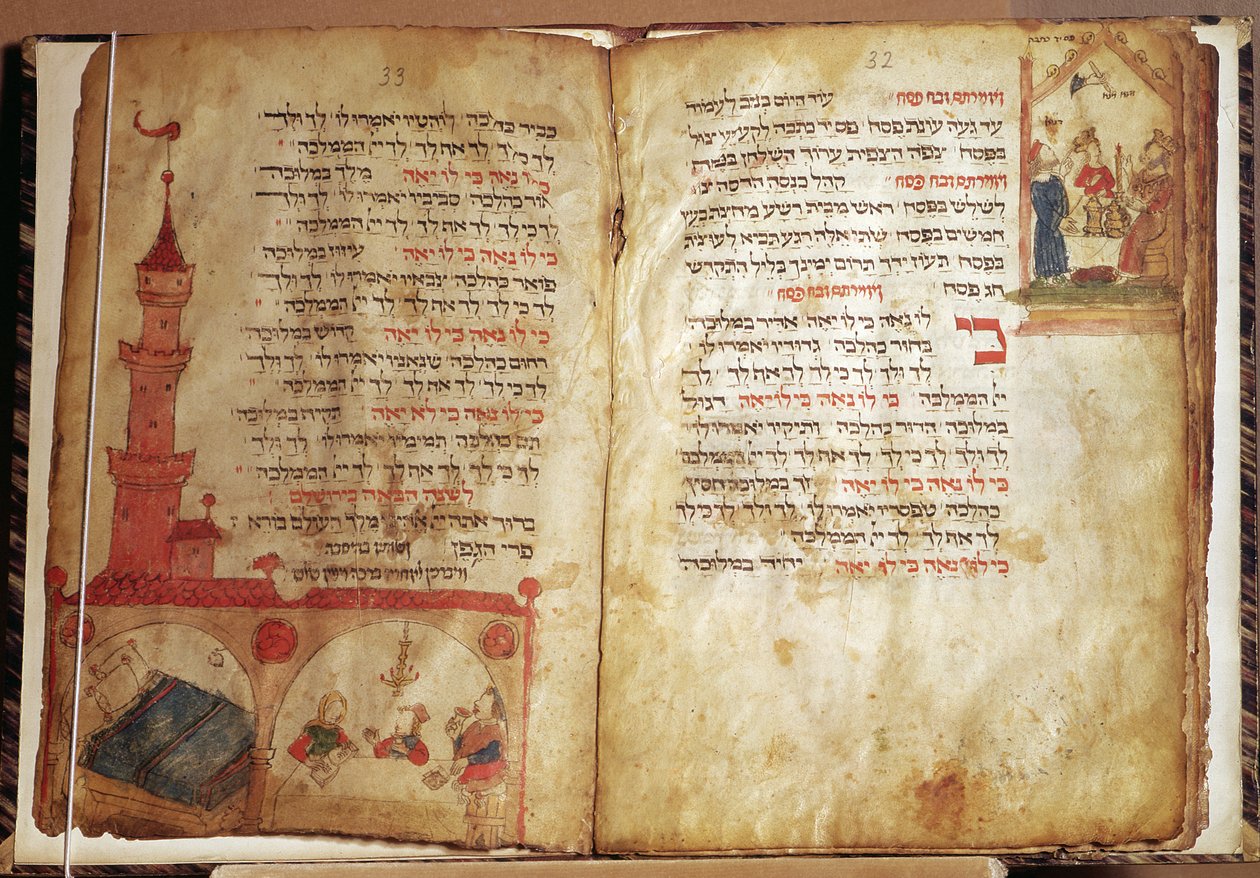 32
פס יד כתבה
ואמרתם זבח פסח" עוד היום בנוב לעמוד
עד געה עונת פסח' פס יד כתבה לקעקע צול
בפסח' צפה הצפית ערוך השלחן בפסח
ואמרתם זבח פסח" קהל כנסה הדסה צו'
לשלש בפסח' ראש מבית רשע מחצת בעץ
חמשים בפסח' שתי אלה רגע תביא לעוצית
בפסח' תעוז ידך תרום ימינך כליל התקדש
חג פסח'
ואמרתם זבח פסח"
כי לו נאה כי לו יאה' אדיר במלוכה'
בחור כהלכה' גדודיו יאמרו לו'
לך ולך' לך כי לך' לך את לך' לך
יי' הממלכה" כי לו נאה כי לו יאה' דגול
במלוכה' הדור כהלכה' ותיקיו יאמרו לו'
לך ולך' לך כי לך' לך את לך' לך יי' הממלכה
כי לו נאה כי לו יאה' זך במלוכה' חסין
כהלכה' טפסריו יאמרו לו' לך ולך' לך כי לך'
לך את לך' לך יי' הממלכה"
כי לו נאה כי לו יאה' יחיד במלוכה'
33
כביר כהלכה' לו' לך ולך'
לך כי לך' לך את לך' לך יי' הממלכה"
כי לו נאה כי לו יאה' מלך במלוכה'
כהלכה' סביביו יאמרו לו' לך ולך'
לך כי לך' לך את לך' לך יי' הממלכה"
כי לו נאה כי לו יאה' עיזוז במלוכה'
פודה כהלכה' צבאיו יאמרו לו' לך ולך'
לך כי לך' לך את לך' לך יי' הממלכה"
כי לו נאה כי לו יאה' קדוש במלוכה'
רחום כהלכה' שנאניו יאמרו לו' לך ולך'
לך כי לך' לך את לך' לך יי' הממלכה"
כי לו נאה כי לא יאה' תקיף במלוכה'
תם כהלכה' תמימיו יאמרו לו' לך ולך'
לך כי לך' לך את לך' לך יי' הממלכה"
לשנה הבאה בירושלם
ברוך אתה יי' אלהינו מלך העולם בורא
פרי הגפן